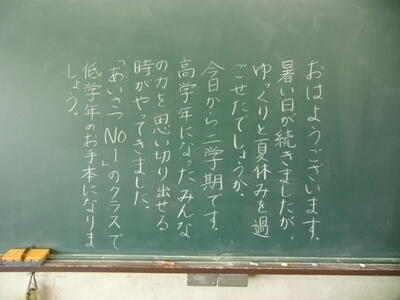 おはようございます。
暑い日が続きましたが、
ゆっくりと夏休みを過
ごせたでしょうか。
今日から二学期です。
高学年になったみんな
の力を思い切り出せる
時がやってきました。
「あいさつNo1」のクラスで
低学年のお手本になりま
しょう。